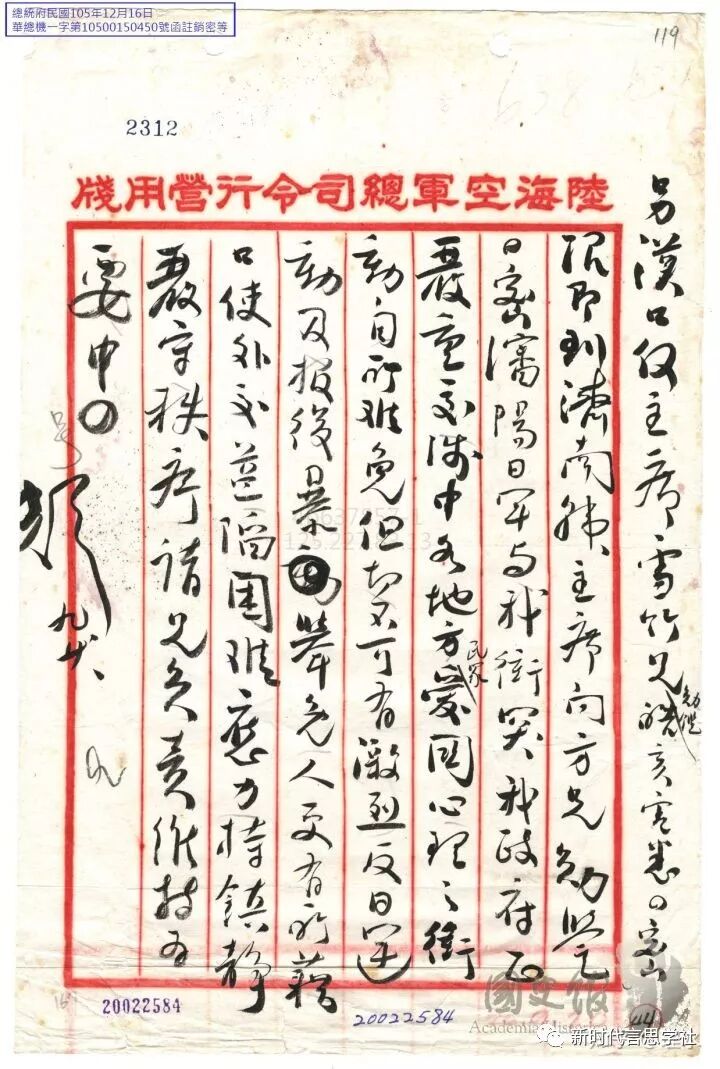 總統府民國105年12月16日
華總機一字第10500150450號函註銷密等
119
2312
陸海空軍總司令行營用牋
另漢口何主席雪竹兄勛鑒亥電悉○密
限即到濟南韓主席向方兄勛鑒
○密瀋陽日軍與我衝突我政府正
嚴重交涉中各地方民眾愛國心理之衝
動自所難免但切不可有激烈反日運
動及報復暴舉免人更有所藉
口使外交益陷困難應力持鎮靜
嚴守秩序請兄負責維持為
要中○
九廿、
20022584
20022584
國史館
Academia Historica
新时代言思学社